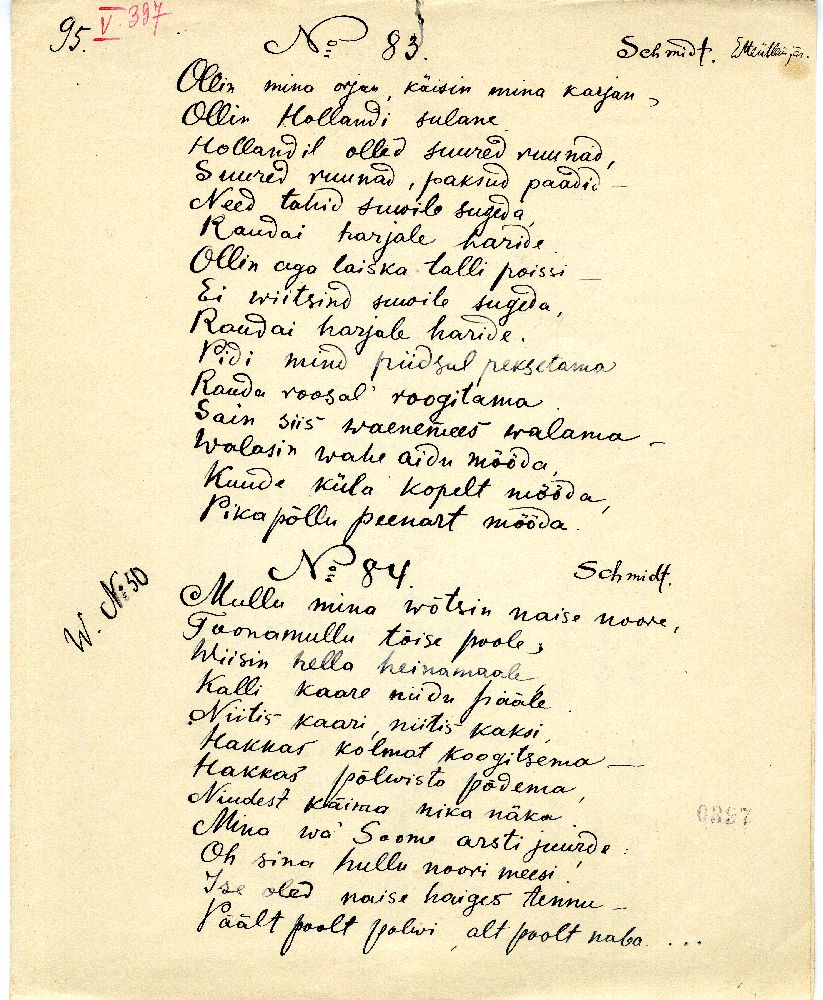 95. V 397
№ 83. Schmidt.
Ollin mina orjan, käisin mina karjan,
Ollin Hollandi sulane
Hollandil olled suured ruunad,
Suured ruunad, paksud paadid —
Need tahid suwile sugeda,
Raudai harjale haride
Ollin aga laiska talli poissi —
Ei wiitsind suwile sugeda,
Raudai harjale haride.
Pidi mind piidsul peksetama
Rauda roosal' roogitama
Sain siis waenemees walama —
Walasin wahe aidu mööda,
Kuude küla kopelt mööda,
Pika põllu peenart mööda.
№ 84. Schmidt.
W. №: 50
Mullu mina wõtsin naise noore,
Toonamullu tõise poole,
Wiisin hella heinamaale,
Kalli kaare niidu pääle
Niitis kaari, niitis kaksi,
Hakkas kolmat koogitsema —
Hakkas põlwista põdema,
Niudest käima nika näka
Mina wa' Soome arsti juurde:
Oh sina hullu noori meesi
Ise oled naise haiges tennu —
Päält poolt polwi, alt poolt naba ...
0397